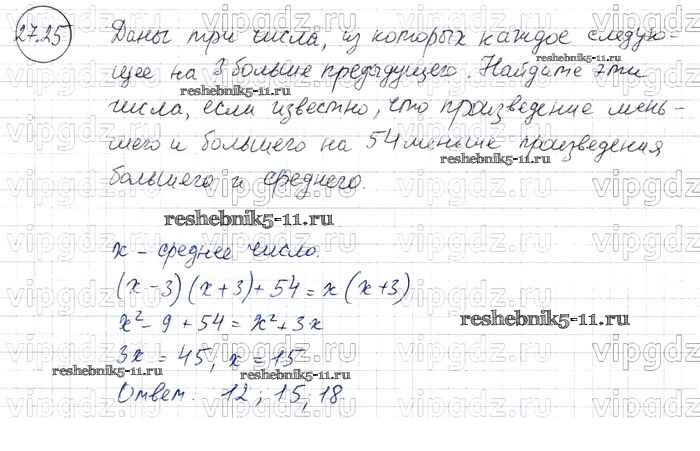 27.25
Даны три числа, из которых каждое следую-
щее на 3 больше предыдущего. Найдите эти
числа, если известно, что произведение мень-
шего и большего на 54 меньше произведения
большего и среднего.
x - среднее число.
(x - 3)(x + 3) + 54 = x(x + 3)
x² - 9 + 54 = x² + 3x
3x = 45, x = 15
Ответ. 12; 15, 18
reshebnik5-11.ru
reshebnik5-11.ru
reshebnik5-11.ru
reshebnik5-11.ru
reshebnik5-11.ru
reshebnik5-11.ru
reshebnik5-11.ru
vipgdz.ru